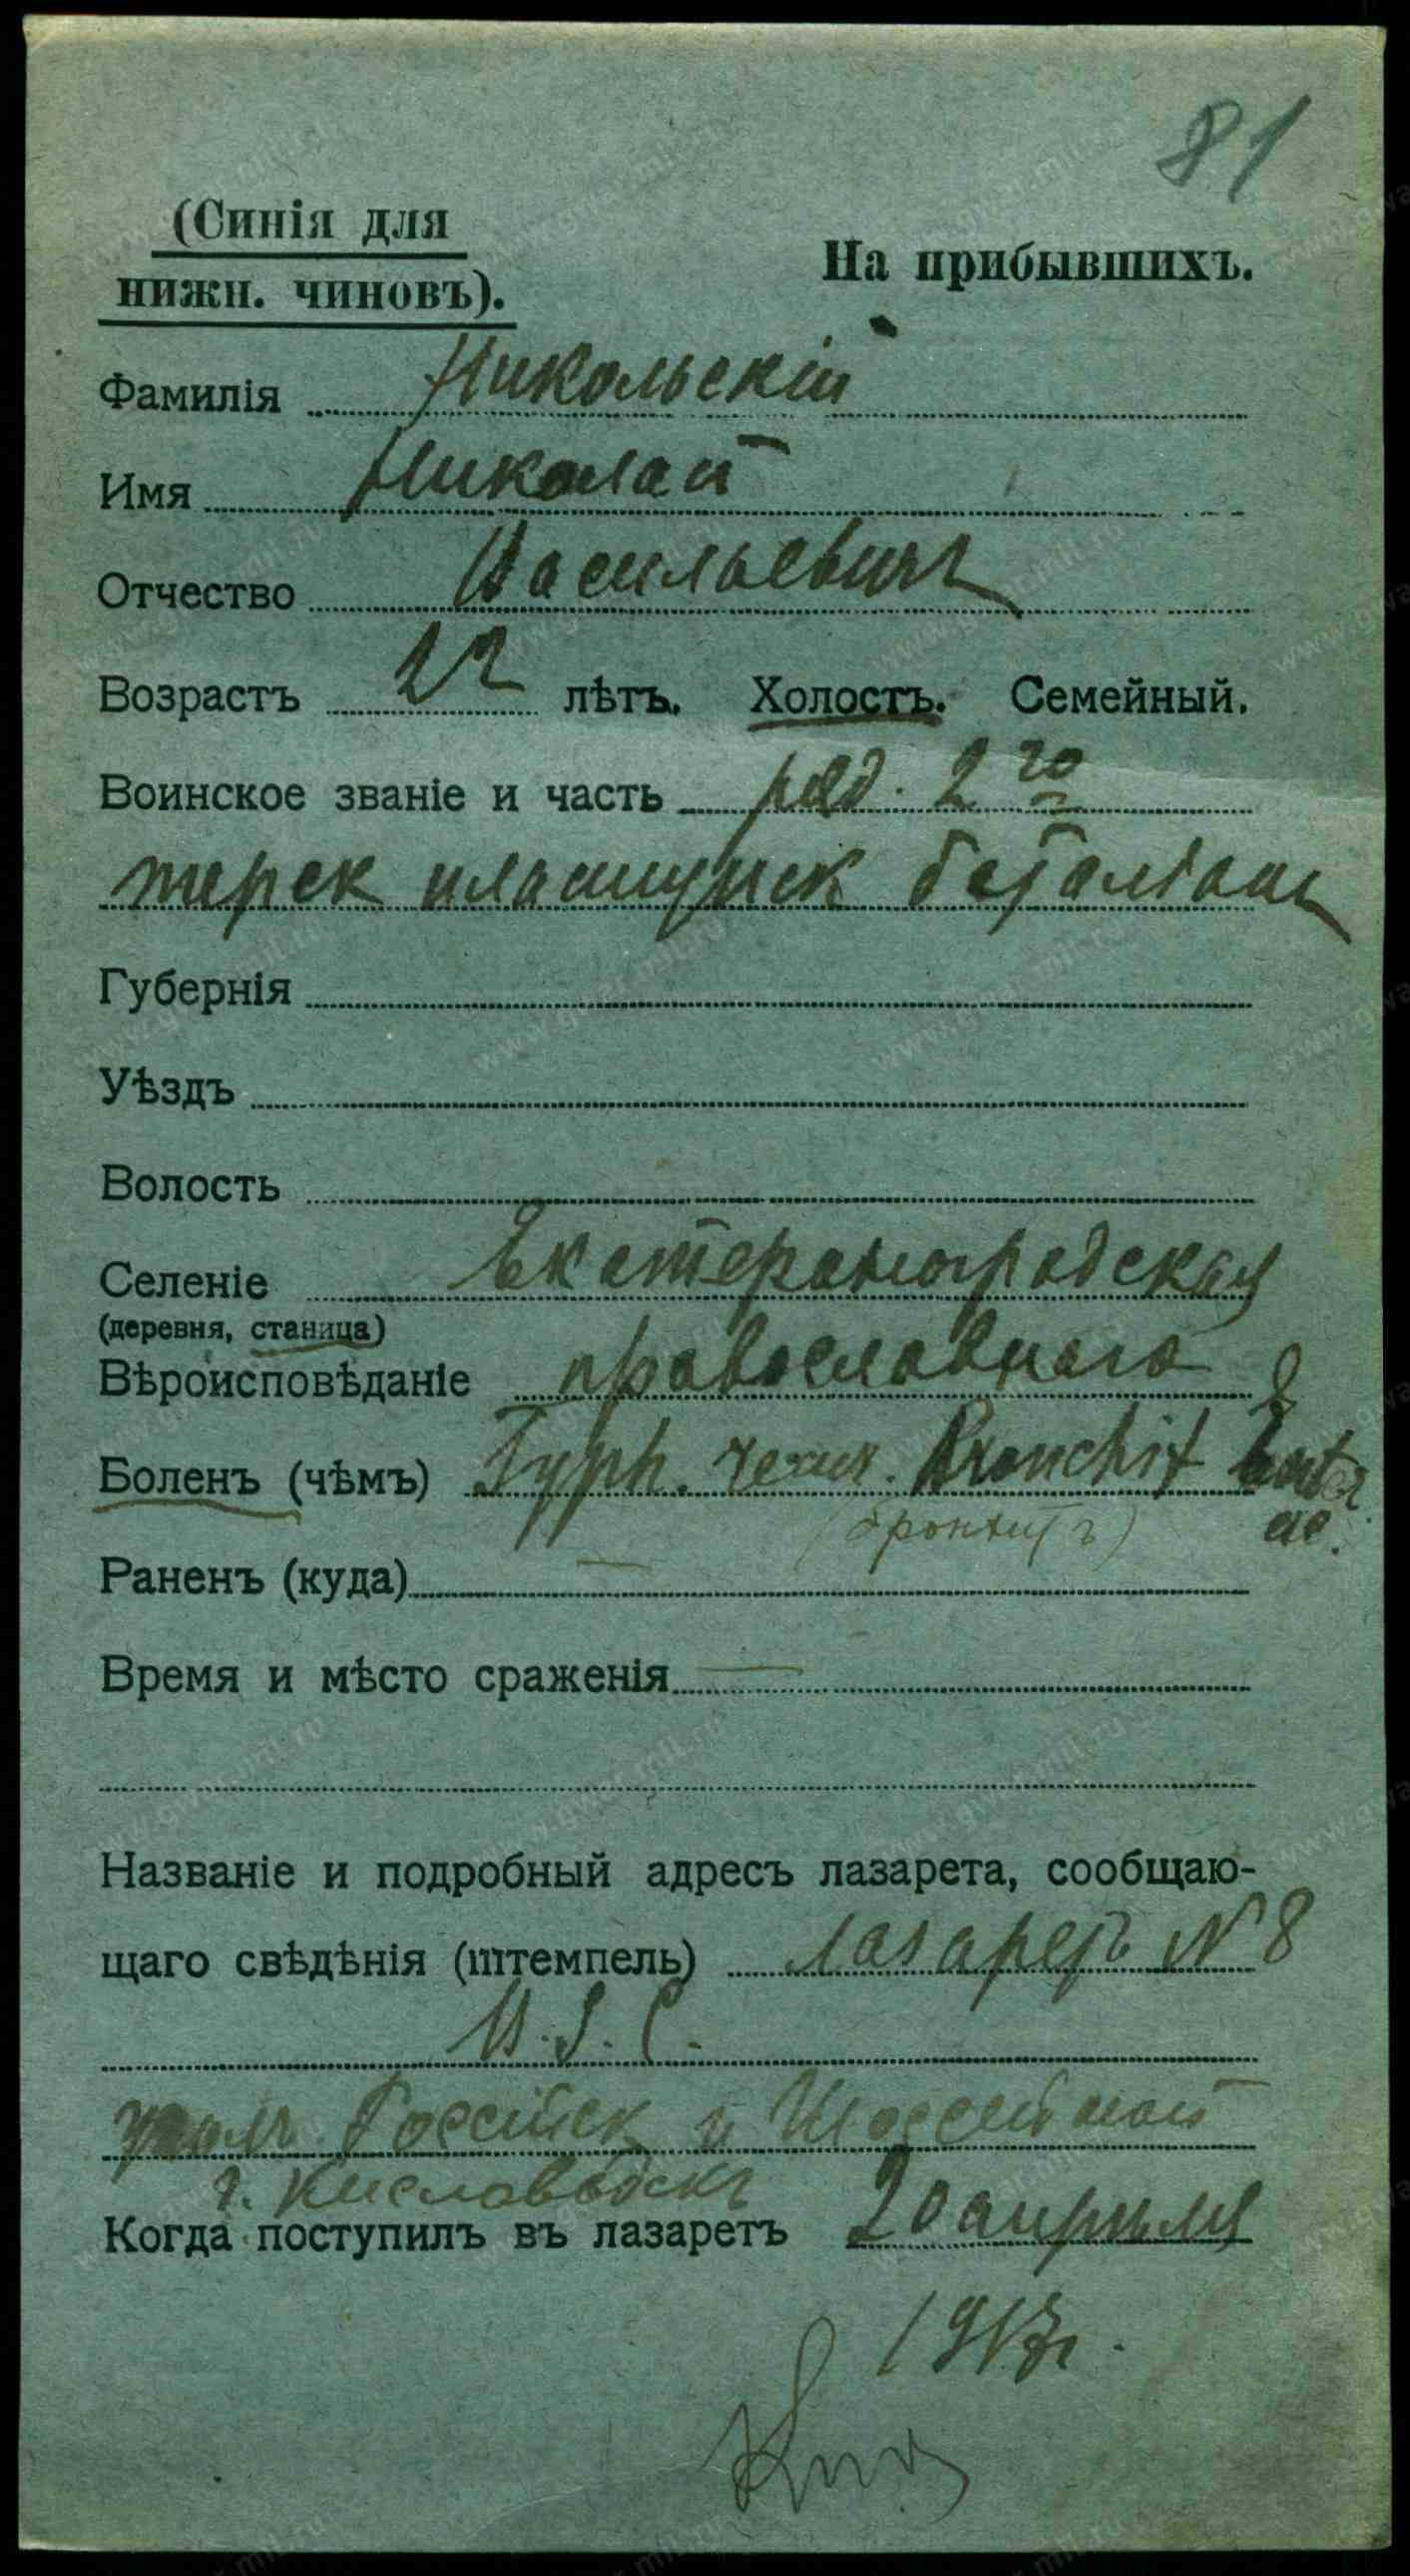 81
(Синія для
нижн. чиновъ).
На прибывшихъ.
Фамилія Никольскій
Имя Николай
Отчество Васильевичъ
Возрастъ 22 лѣтъ. Холостъ. Семейный.
Воинское званіе и часть ряд. 2го
терск пластунск баталіонъ
Губернія
Уѣздъ
Волость
Селеніе Екатериноградская
(деревня, станица)
Вѣроисповѣданіе православнаго
Боленъ (чѣмъ) Typh. Bronchit
(бронхитъ) ac.
Раненъ (куда) —
Время и мѣсто сраженія —
Названіе и подробный адресъ лазарета, сообщаю-
щаго свѣдѣнія (штемпель) Лазаретъ N 8
В.З.С.
Россійск и Шоссейной
г. Кисловодскъ
Когда поступилъ въ лазаретъ 20 апрѣля
1917г.